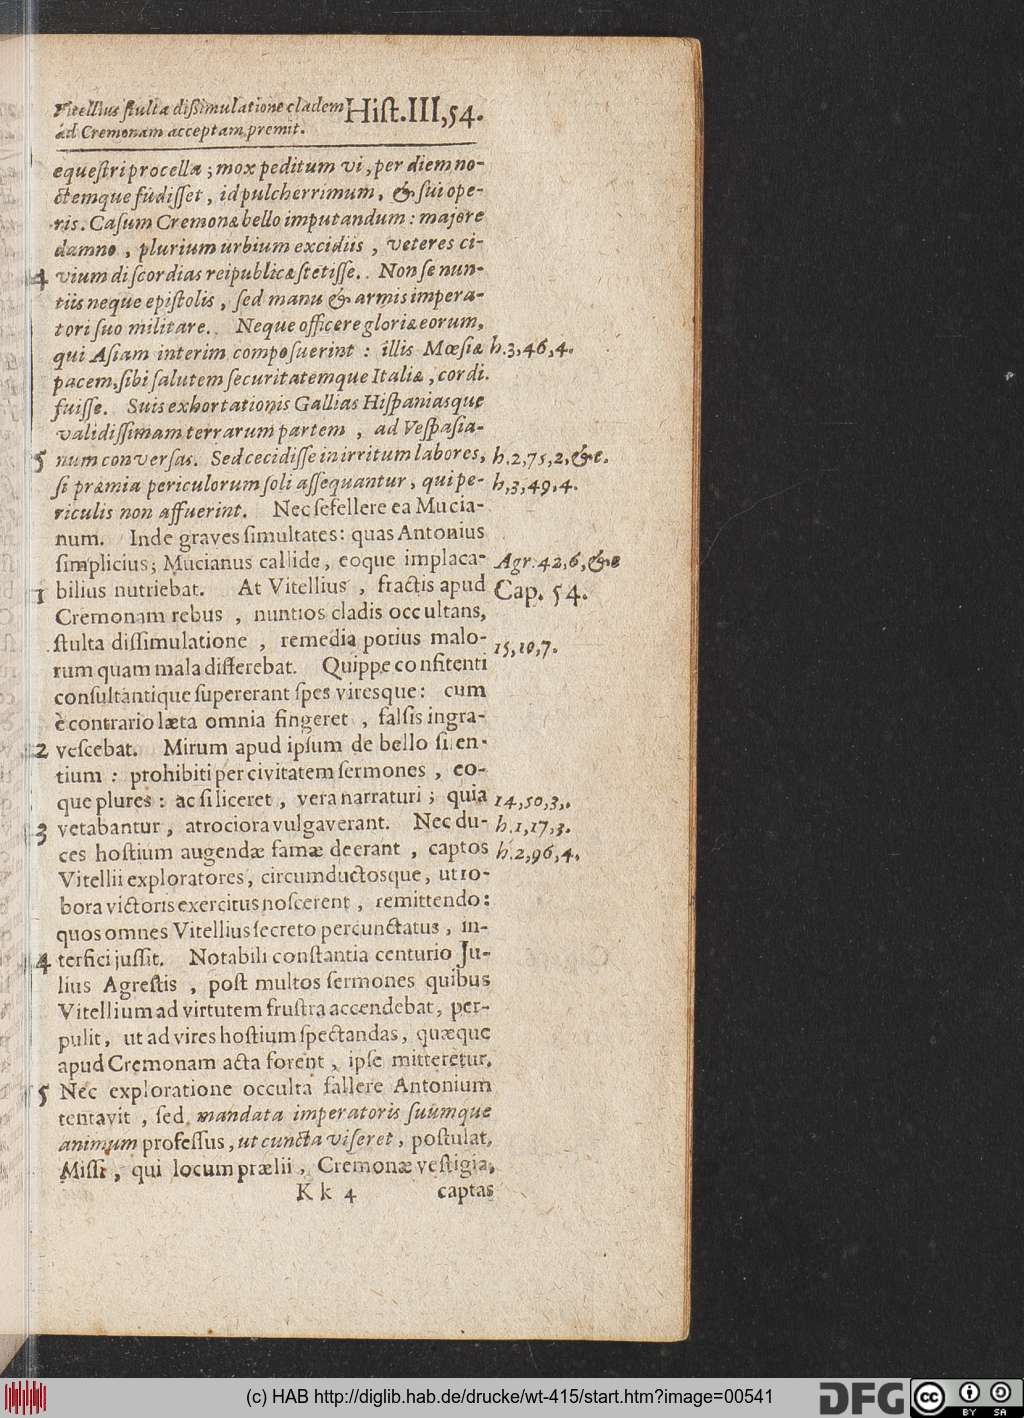 Vitellius stulta dißimulatione cladem Hist. III, 54.
ad Cremonam acceptam premit.
equestri procella; mox peditum vi, per diem no-
ctemque fudisset, id pulcherrimum, & sui ope-
ris. Casum Cremonæ bello imputandum: majore
damno, plurium urbium excidiis, veteres ci-
4 vium discordias reipublicæ stetisse. Non se nun-
tiis neque epistolis, sed manu & armis impera-
tori suo militare. Neque officere gloriæ eorum,
qui Asiam interim composuerint: illis Mœsiæ h. 3, 46, 4.
pacem, sibi salutem securitatemque Italiæ, cordi.
fuisse. Suis exhortationis Gallias Hispaniasque
validissimam terrarum partem, ad Vespasia-
5 num conversas. Sed cecidisse in irritum labores, h. 2, 75, 2, &c.
si præmia periculorum soli assequantur, qui pe- h, 3, 49, 4.
riculis non affuerint. Nec fefellere ea Mucia-
num. Inde graves simultates: quas Antonius
simplicius; Mucianus callide, eoque implaca- Agr. 42, 6, &c
1 bilius nutriebat. At Vitellius, fractis apud Cap. 54.
Cremonam rebus, nuntios cladis occultans,
stulta dissimulatione, remedia potius malo- 15, 10, 7.
rum quam mala differebat. Quippe confitenti
consultantique supererant spes viresque: cum
è contrario læta omnia fingeret, falsis ingra-
2 vescebat. Mirum apud ipsum de bello silen-
tium: prohibiti per civitatem sermones, eo-
que plures: ac si liceret, vera narraturi; quia 14, 50, 3,.
3 vetabantur, atrociora vulgaverant. Nec du- h. 1, 17, 3.
ces hostium augendæ famæ deerant, captos h. 2, 96, 4,
Vitellii exploratores, circumductosque, ut ro-
bora victoris exercitus noscerent, remittendo:
quos omnes Vitellius secreto percunctatus, in-
4 terfici jussit. Notabili constantia centurio Ju-
lius Agrestis, post multos sermones quibus
Vitellium ad virtutem frustra accendebat, per-
pulit, ut ad vires hostium spectandas, quæque
apud Cremonam acta forent, ipse mitteretur.
5 Nec exploratione occulta fallere Antonium
tentavit, sed mandata imperatoris suumque
animum professus, ut cuncta viseret, postulat.
Missi, qui locum prælii, Cremonæ vestigia,
K k 4 captas
(c) HAB http://diglib.hab.de/drucke/wt-415/start.htm?image=00541
DFG
cc BY SA